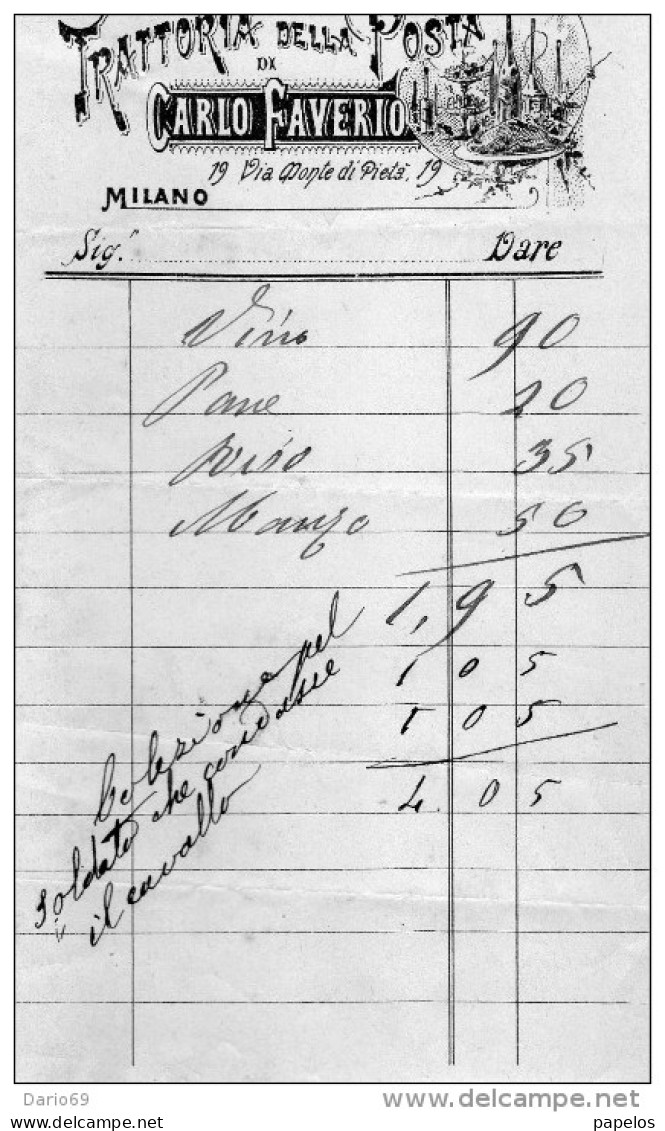 TRATTORIA DELLA POSTA
DI
CARLO FAVERIO
19 Via Monte di Pietà, 19
MILANO
Sig.r Dare
Vino 90
Pane 20
Riso 35
Manzo 50
1,95
1 05
1 05
4 05
Colezione pel
soldato che condusse
il cavallo
Dario69
delcampe.net
papelos